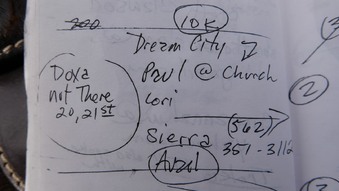 10K
Dream City
Doxa
not There
20, 21st
Paul @ Church
Lori
Sierra
(562)
351-3116
2